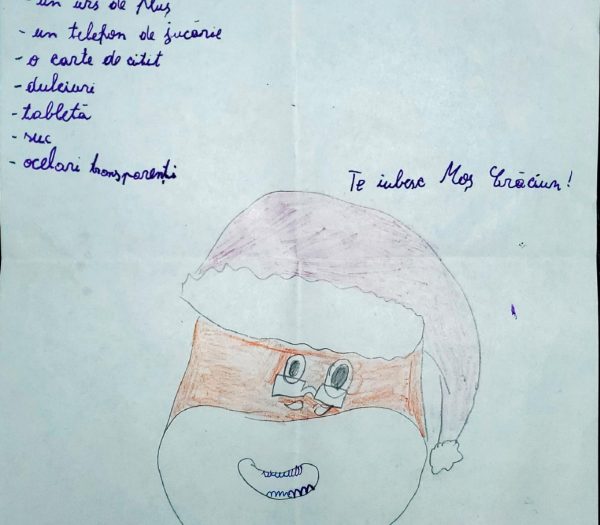 - un urs de pluș
- un telefon de jucărie
- o carte de citit
- dulciuri
- tabletă
- suc
- ocelari transparenți
Te iubesc Moș Crăciun!